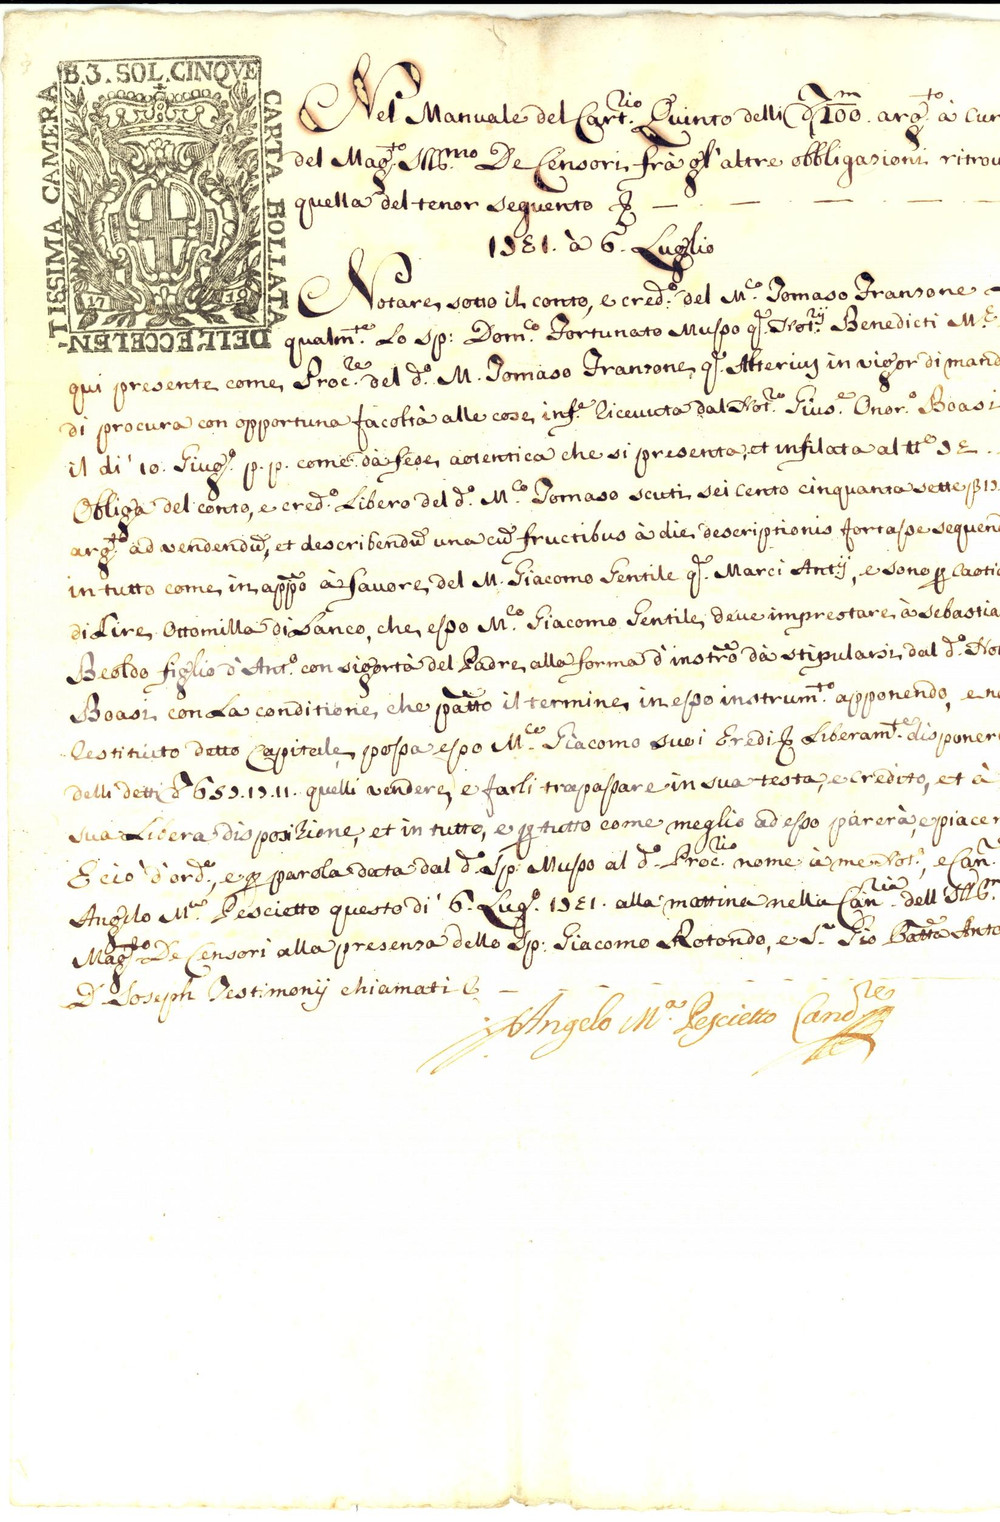 B.3. SOL. CINQVE
CARTA BOLLATA
DELL'ECCELEN-
TISSIMA CAMERA
17 19
Nel Manuale del Cart.rio Quinto delli 100.m arg.to à Cur
del Mag.to Ill.mo De Censori, frà gl'altre obbligazioni ritrou
quella del tenor seguente
à 6. Luglio
Notare, sotto il conto, e cred.o del M.co Tomaso Franzone
qualm.te Lo Sp: Dom.co Fortunato Musso q. Not.rij Benedicti M.e
qui presente come, Proc.re del d.o M. Tomaso Franzone, q. Alterius in vigor di mand
di procura con opportuna facoltà alle cose, inf.e riceuuta dal Not.ro Gius.e Onor.o Boasi
il di' 10. Giug.o p. p. come, da fede, autentica che si presenta, et infilata al
Obliga del conto, e cred.o Libero del d.o M.co Tomaso scuti sei cento cinquanta sette
arg.to ad vendendũ, et describendũ una cũ fructibus à die, descriptionis fortasse sequen
in tutto come, in app.o à favore, del M. Giacomo Gentile q. Marci Ant.ij, e sono p Cautio
di Lire, Ottomilla di banco, che, esso M.co Giacomo Gentile, deve imprestare, à Sebastia
Beoldo figlio d'Ant.o con sigortà del Padre, alla forma d'instr.o dà stipularsi, dal d.o Not
Boasi, con La conditione, che, p.atto il termine, in esso instrum.to apponendo, e no
restituito detto Capitale, possa esso M.co Giacomo suoi Eredi Liberam.te disponere
delli detti quelli vendere, e farli trapassare in sua testa, e Credito, et à
sua Libera disposizione, et in tutto, e p tutto come meglio ad esso parerà, e piacer
E ciò d'ord.e, e p parola data dal d.o Sp: Musso al d.o Proc.rio nome à me Not.o, e Can.
Angelo M.a Pescietto questo dì 6. Lug.o alla mattina nella Can.ria dell'Ill.m
Mag.to De Censori alla presenza dello Sp: Giacomo Rotondo, e S.r Gio Batta Anto
D. Joseph Testimonij chiamati
Angelo M.a Pescietto Canc.re